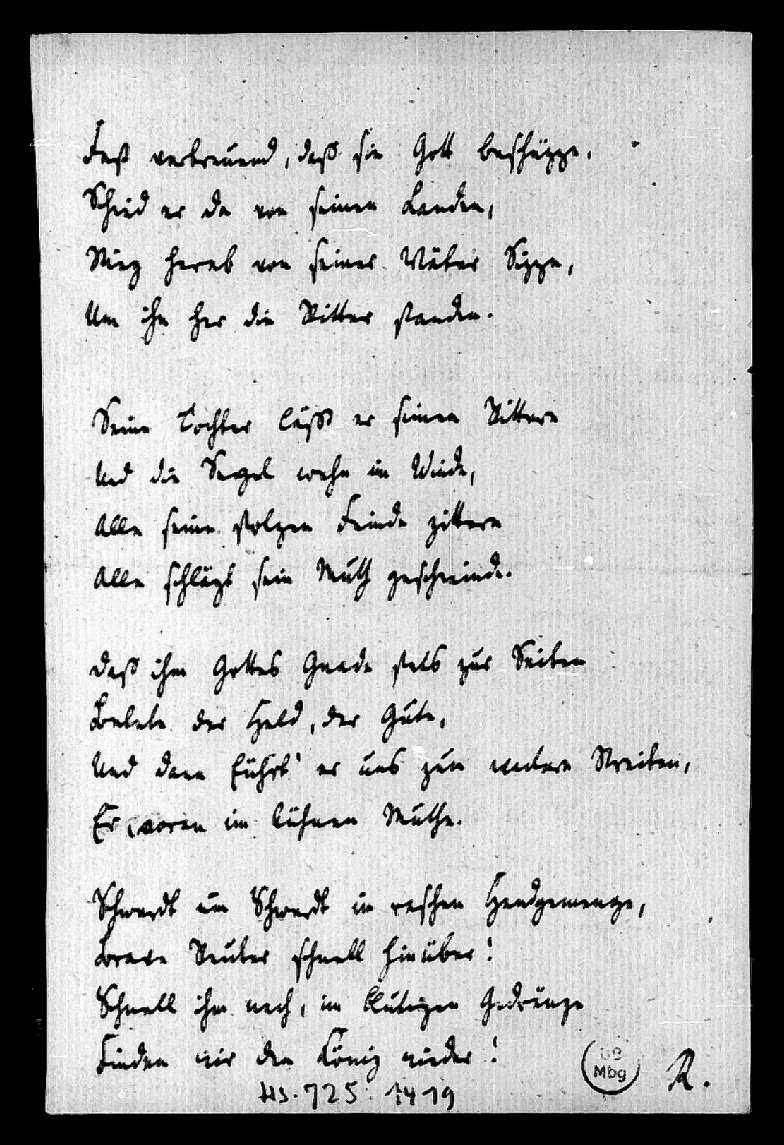 Fest vertrauend, daß sie Gott beschüzze,
Schied er da von seinen Landen,
Stieg herab von seiner Väter Sizze,
Um ihn her die Ritter standen.
Seine Tochter läßt er seinen Rittern
Und die Segel wehn im Winde,
Alle seine stolzen Feinde zittern
Alle schlägt sein Muth geschwinde.
Daß ihm Gottes Gnade stets zur Seiten
der Held, der Gute,
Und dann führt' er uns zum wackern Streiten,
Er voran im kühnen Muthe.
Schwerdt um Schwerdt im raschen Handgemenge,
Brave Reuter schnell hinüber!
Schnell ihm nach, im blutigen Gedränge
Finden wir den König wieder!
Mbg
R.
Hs. 725: 1419